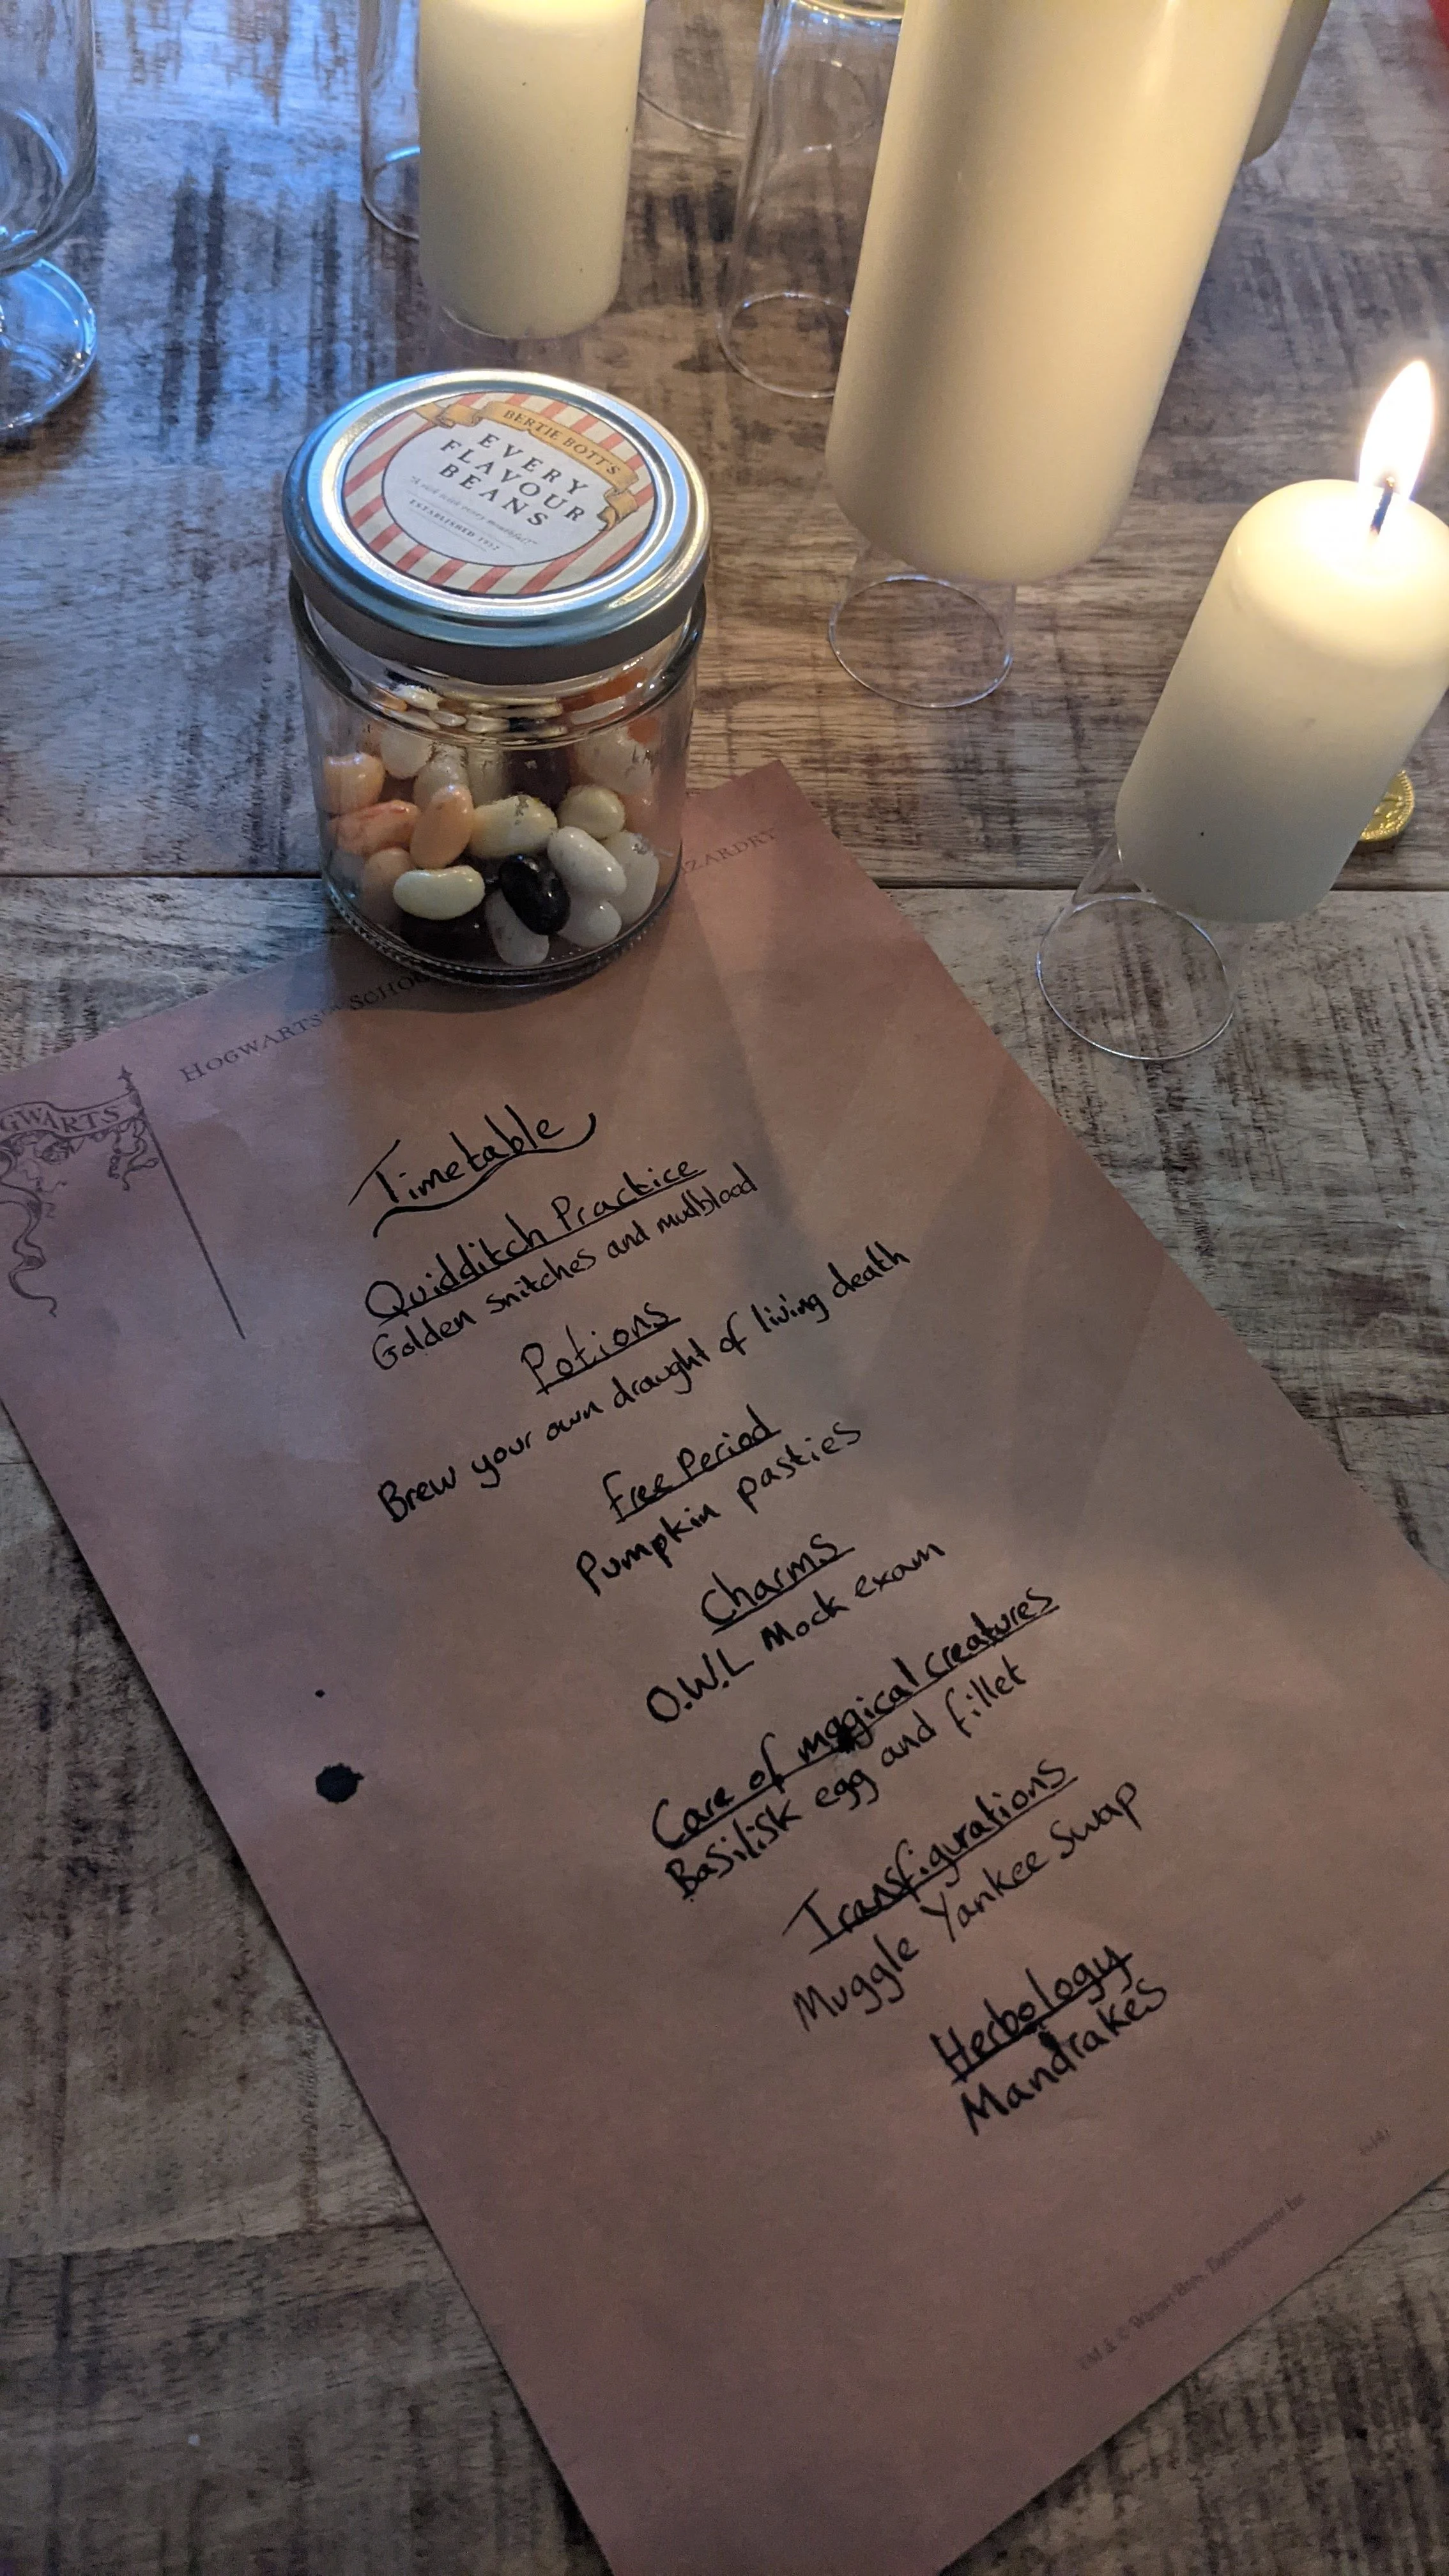 BERTIE BOTT'S
EVERY
FLAVOUR
BEANS
ESTABLISHED
HOGWARTS SCHOO
ZARDRY
GWARTS
Timetable
Quidditch Practice
Golden snitches and mudblood
Potions
Brew your own draught of living death
Free Period
Pumpkin pasties
Charms
O.W.L Mock exam
Care of magical creatures
Basilisk egg and fillet
Transfigurations
Muggle Yankee Swap
Herbology
Mandrakes
TM & © Warner Bros. Entertainment Inc.